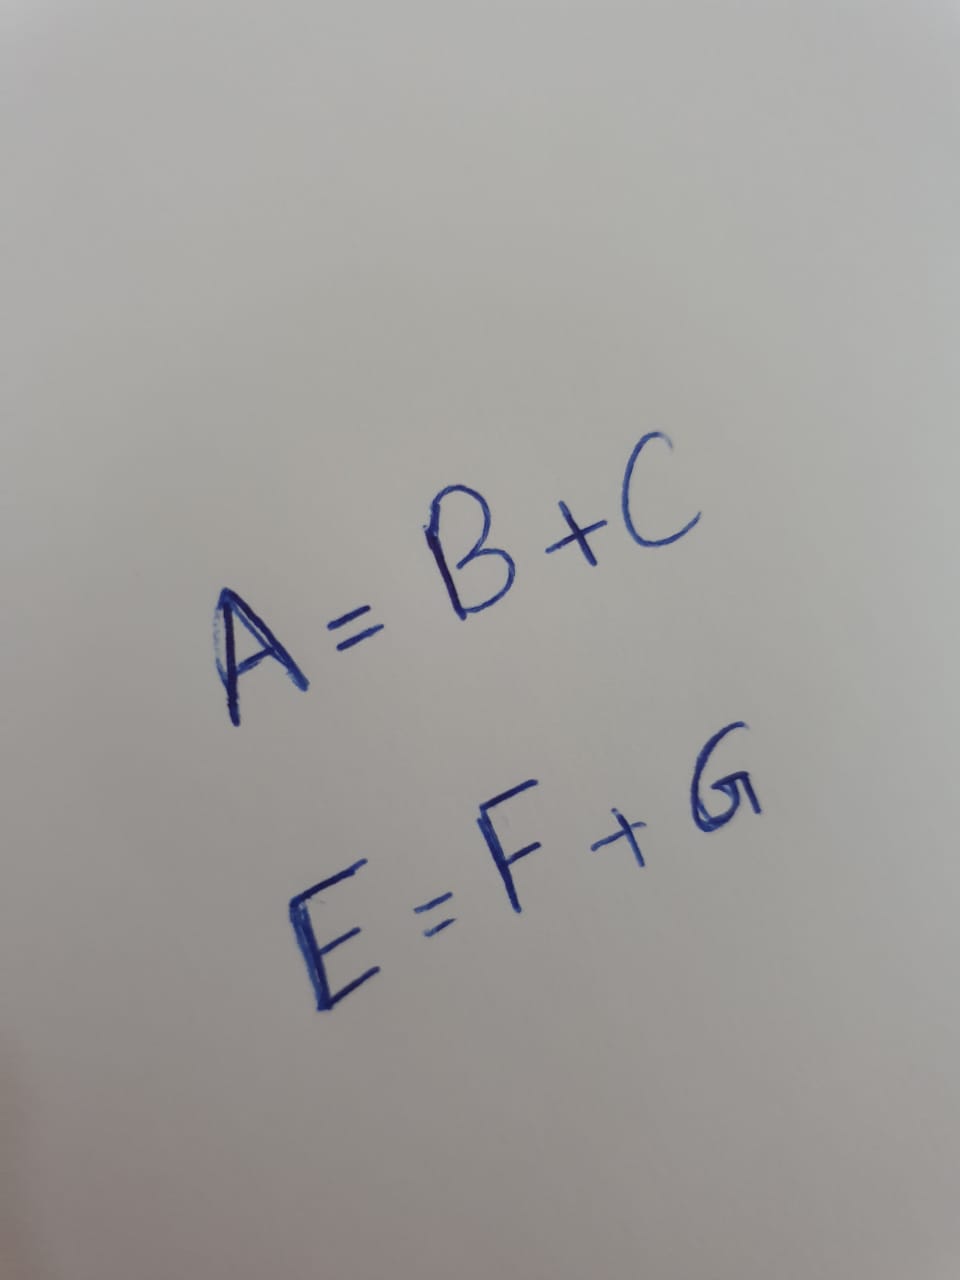 A = B + C
E = F + G